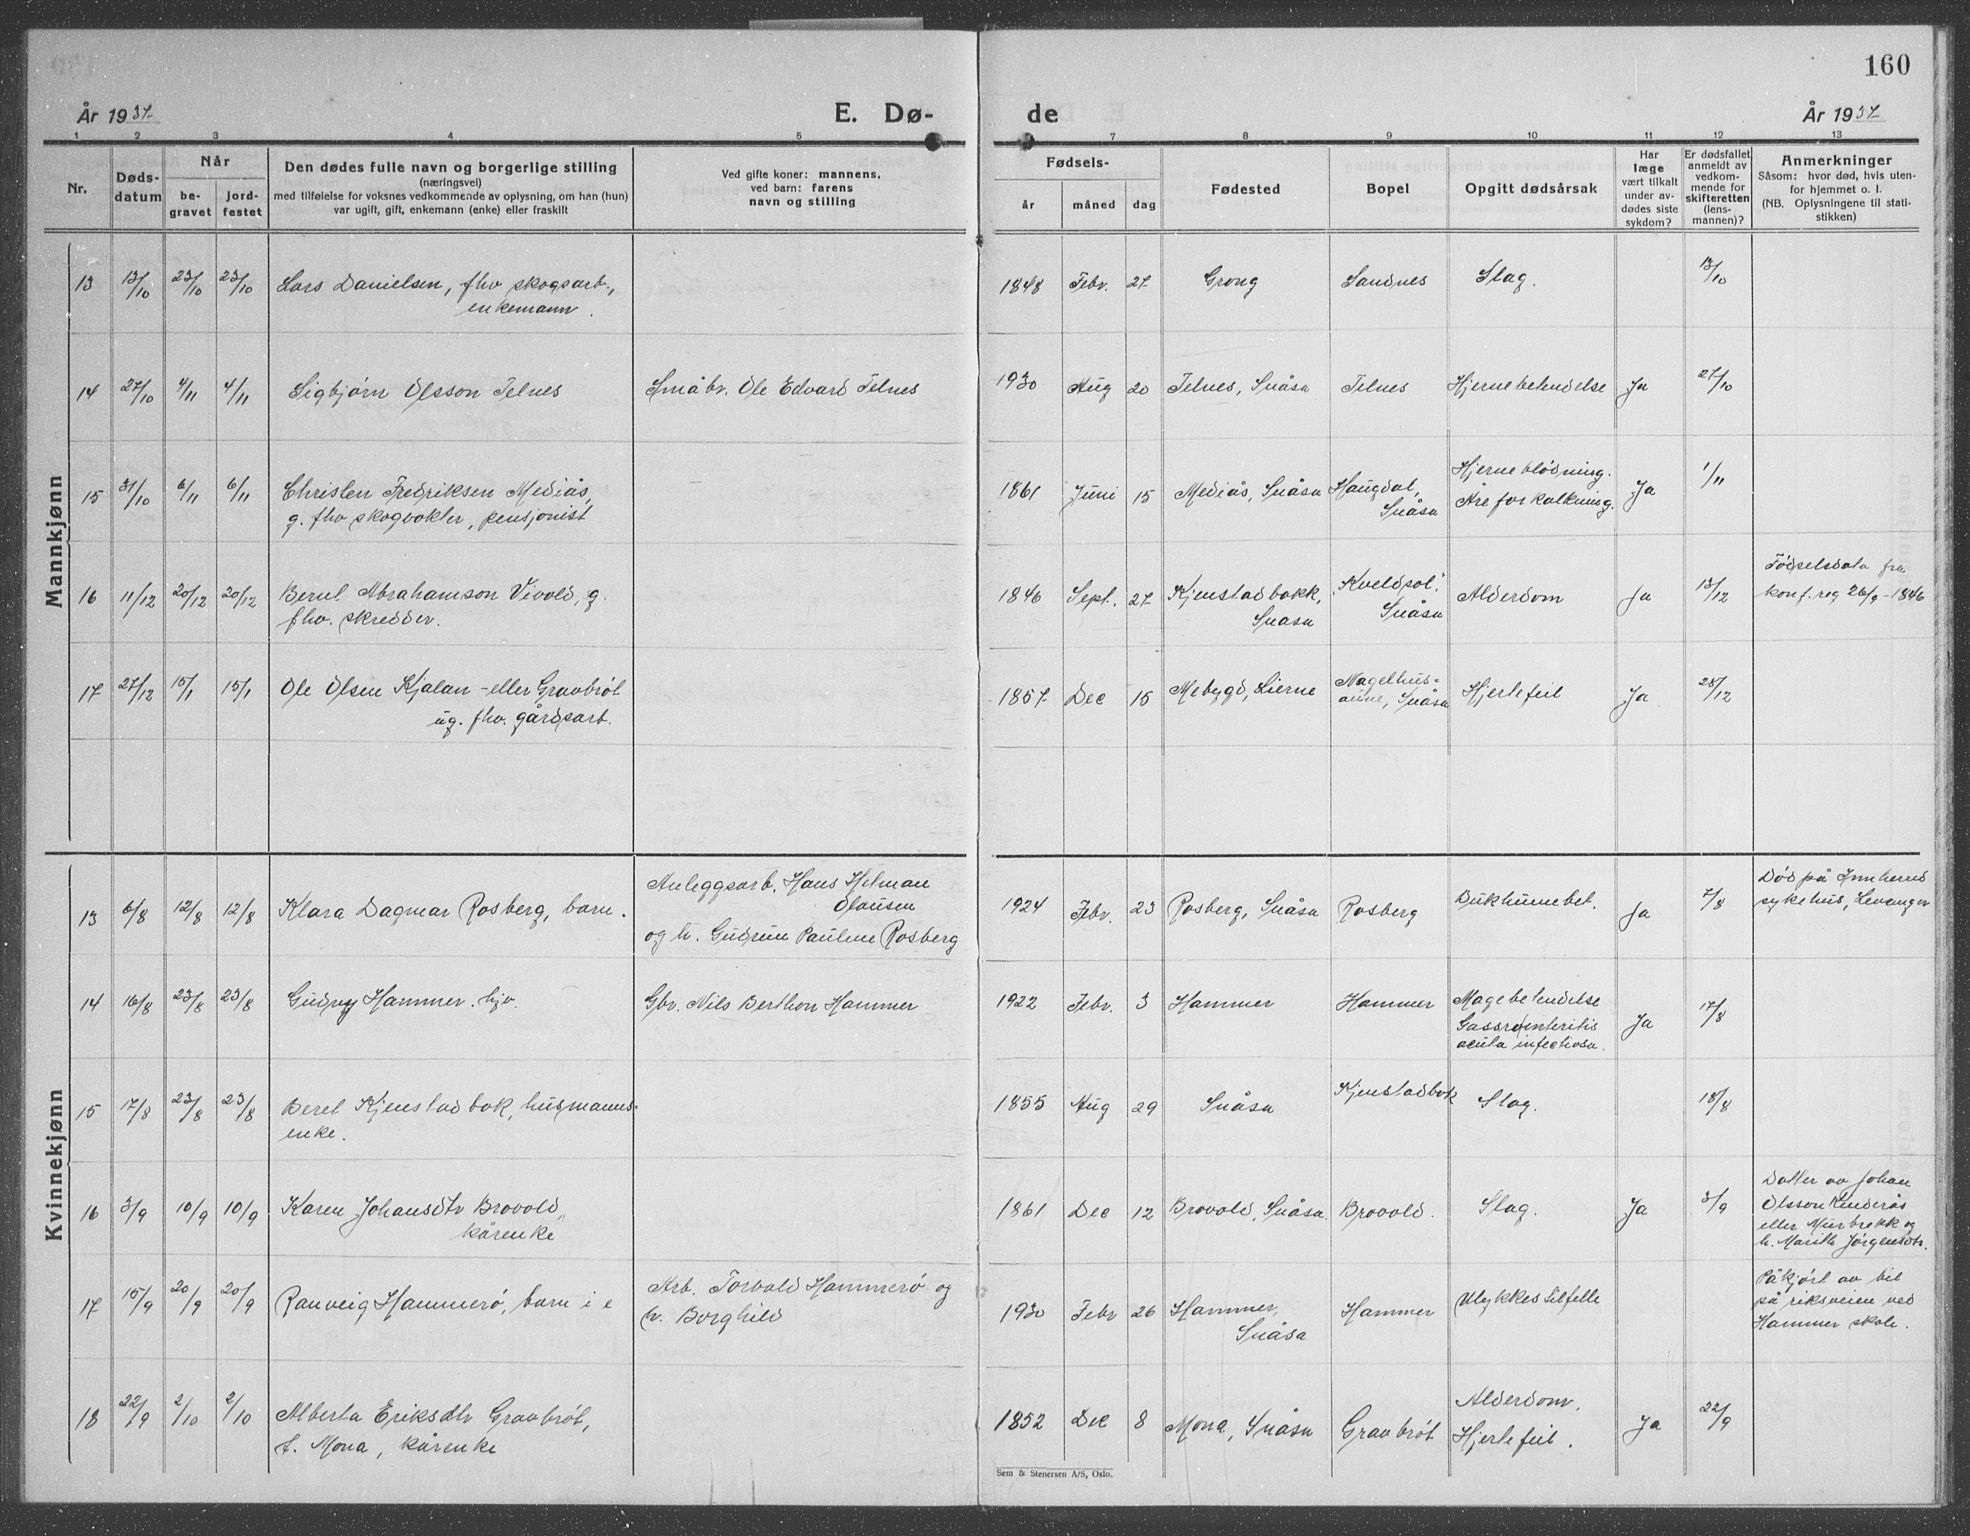 160
År 1937
E. Dø-
de
År 1937
1 2 3 4 5 7 8 9 10 11 12 13
Nr.
Døds-
datum
Når
be-
gravet
jord-
festet
Den dødes fulle navn og borgerlige stilling
(næringsvei)
med tilføielse for voksnes vedkommende av oplysning, om han (hun)
var ugift, gift, enkemann (enke) eller fraskilt
Ved gifte koner: mannens,
ved barn: farens
navn og stilling
Fødsels-
år måned dag
Fødested
Bopel
Opgitt dødsårsak
Har
læge
vært tilkalt
under av-
dødes siste
sykdom?
Er dødsfallet
anmeldt av
vedkom-
mende for
skifteretten
(lens-
mannen)?
Anmerkninger
Såsom: hvor død, hvis uten-
for hjemmet o. l.
(NB. Oplysningene til stati-
stikken)
Mannkjønn
13 13/10 23/10 23/10 Lars Danielsen, fhv skogsarb.,
enkemann.
1848 Febr. 27 Grong Sandnes Slag. 13/10
14 27/10 4/11 4/11 Sigbjørn Olsson Telnes Småbr. Ole Edvard Telnes
1930 Aug 20 Telnes, Snåsa Telnes Hjernebetendelse Ja 27/10
15 31/10 6/11 6/11 Christen Fredriksen Mediås,
g. fhv skogvokter, pensjonist
1861 Juni 15 Mediås, Snåsa Haugdal,
Snåsa
Hjerneblødning.
Åreforkalkning.
Ja 1/11
16 11/12 20/12 20/12 Bernt Abrahamson Vivold, g.
fhv. skredder.
1846 Sept. 27 Kjenstadbakk,
Snåsa
"Kveldsol"
Snåsa
Alderdom Ja 13/12
Fødselsdata fra
konf.reg 26/9-1846
17 27/12 15/1 15/1 Ole Olsen Kjølan - eller Gravbrøt
ug. fhv. gårdsarb.
1857 Dec 15 Mebygd, Lierne Nagelhus-
aune, Snåsa
Hjertefeil Ja 28/12
Kvinnekjønn
13 6/8 12/8 12/8 Klara Dagmar Rosberg, barn.
Anleggsarb. Hans Hilman
Olausen
og h. Gudrun Pauline Rosberg
1924 Febr. 23 Rosberg, Snåsa Rosberg Bukhinnebet. Ja 7/8
Død på Innherred
sykehus, Levanger
14 16/8 23/8 23/8 Gudny Hammer. hjv. Gbr. Nils Berthon Hammer
1922 Febr. 3 Hammer Hammer Magebetendelse
Gasstroenteritis
acuta infectiosa.
Ja 17/8
15 17/8 23/8 23/8 Beret Kjenstadbok, husmanns-
enke.
1855 Aug 29 Snåsa Kjenstadbok Slag. 18/8
16 3/9 10/9 10/9 Karen Johansdtr Brovold,
kårenke
1861 Dec 12 Brovold, Snåsa. Brovold. Slag. Ja 3/9
Datter av Johan
Olsson Kinderås
eller Murbrekk og
h. Marith Jørgensdtr.
17 15/9 20/9 20/9 Ranveig Hammerø, barn i e
Arb. Torvald Hammerø og
h. Borghild
1930 Febr 26 Hammer,
Snåsa
Hammer Ulykkestilfelle
Påkjørt av bil
på riksveien ved
Hammer skole.
18 22/9 2/10 2/10 Alberta Eriksdtr Gravbrøt,
f. Mona, kårenke
1852 Dec 8 Mona, Snåsa Gravbrøt Alderdom.
Hjertefeil.
Ja 22/9
Sem & Stenersen A/S, Oslo.